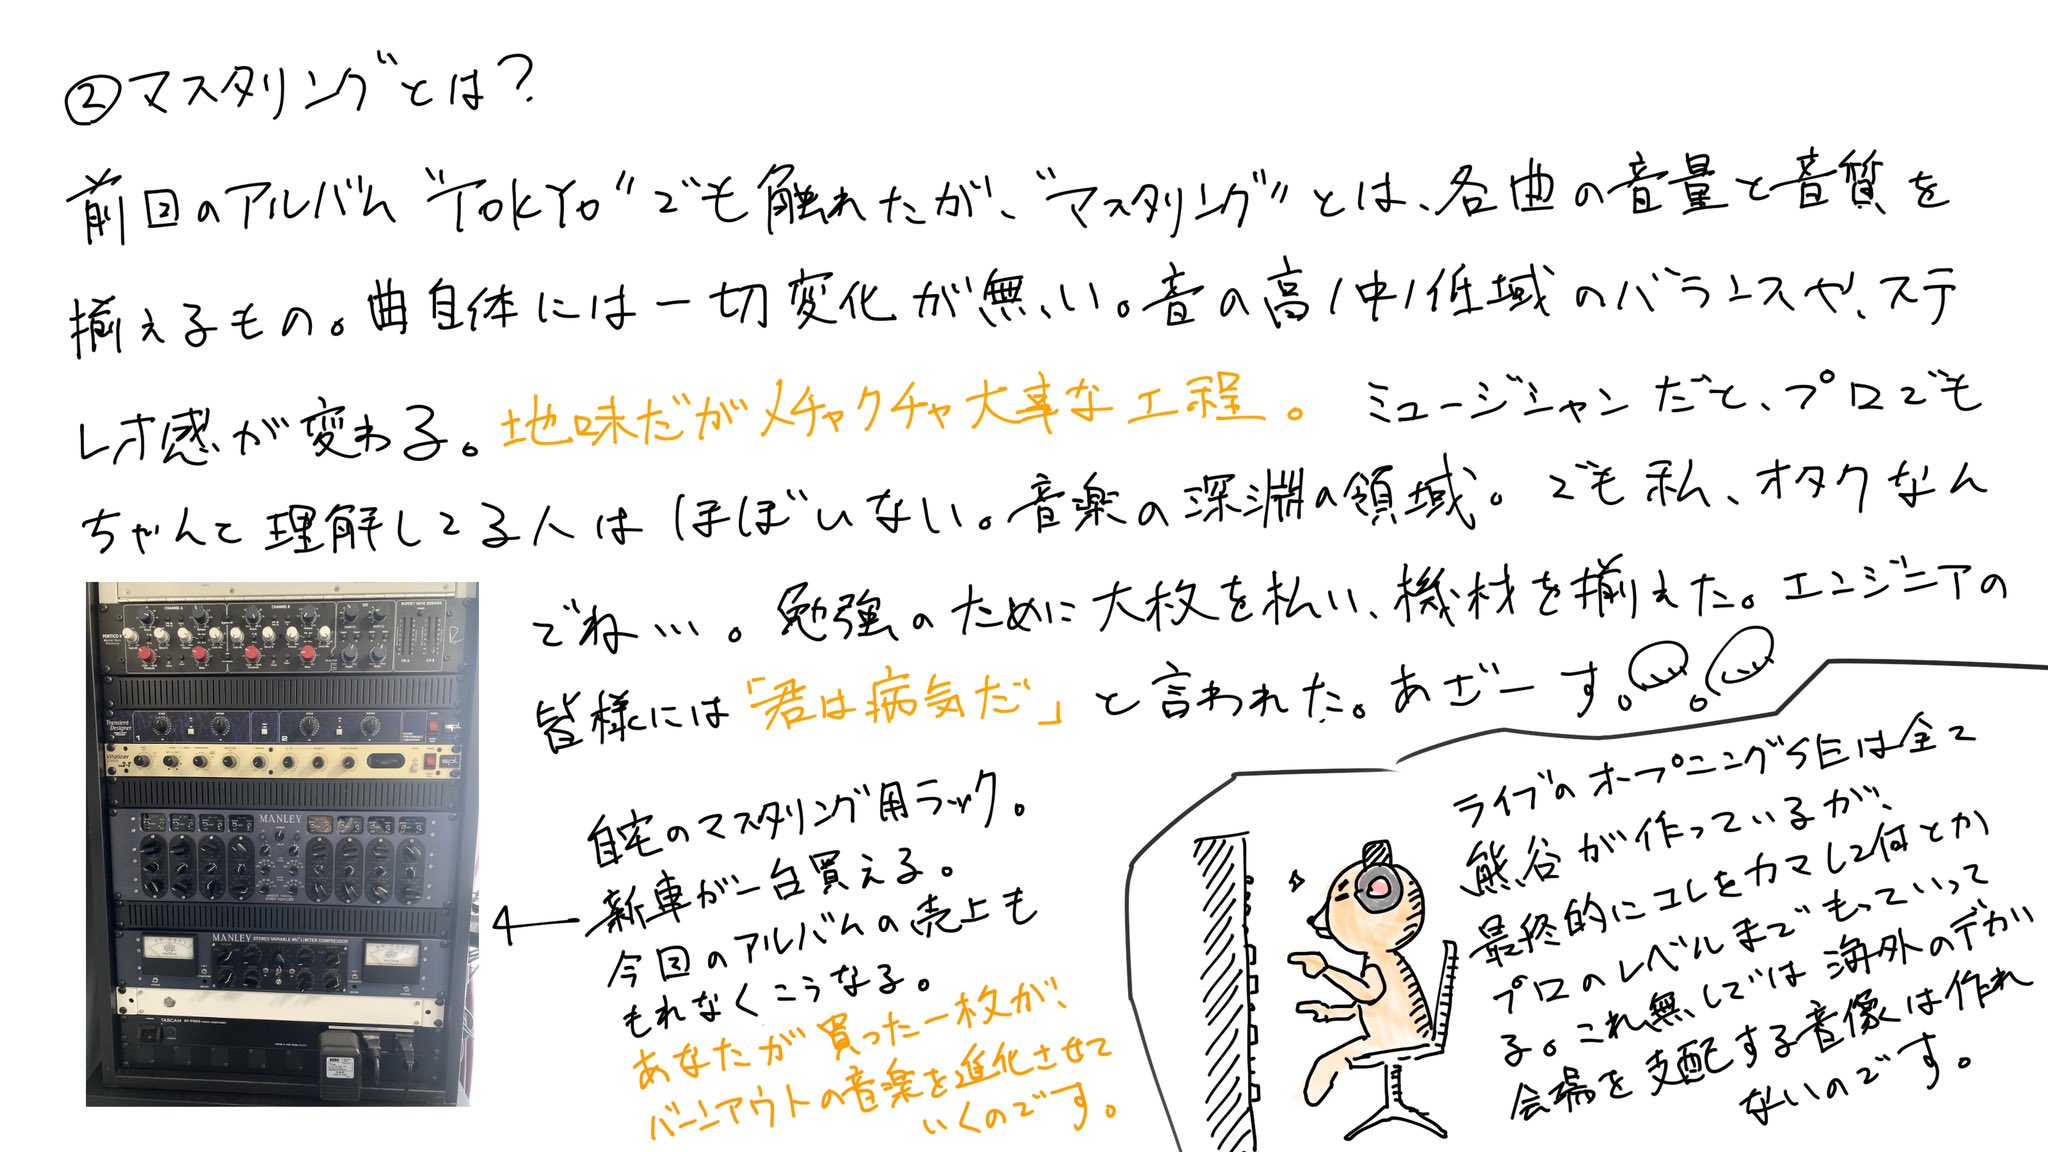 ②マスタリングとは?
前回のアルバム“TOKYO”でも触れたが、“マスタリング”とは、各曲の音量と音質を
揃えるもの。曲自体には一切変化が無い。音の高/中/低域のバランスや、ステ
レオ感が変わる。地味だがメチャクチャ大事な工程。ミュージシャンだと、プロでも
ちゃんと理解してる人はほぼいない。音楽の深淵の領域。でも私、オタクなん
でね…。勉強のために大枚を払い、機材を揃えた。エンジニアの
皆様には「君は病気だ」と言われた。あざーす。
自宅のマスタリング用ラック。
新車が一台買える。
今回のアルバムの売上も
もれなくこうなる。
あなたが買った一枚が、
バーンアウトの音楽を進化させて
いくのです。
ライブのオープニングSEは全て
熊谷が作っているが、
最終的にコレをカマして何とか
プロのレベルまでもっていって
る。これ無しでは海外のデカい
会場を支配する音像は作れ
ないのです。
CHANNEL A
CHANNEL B
RUPERT NEVE DESIGNS
PORTICO II
R
Transient Designer
spl
Vitalizer
MK2-T
spl
MANLEY
MANLEY STEREO VARIABLE MU LIMITER COMPRESSOR
TASCAM